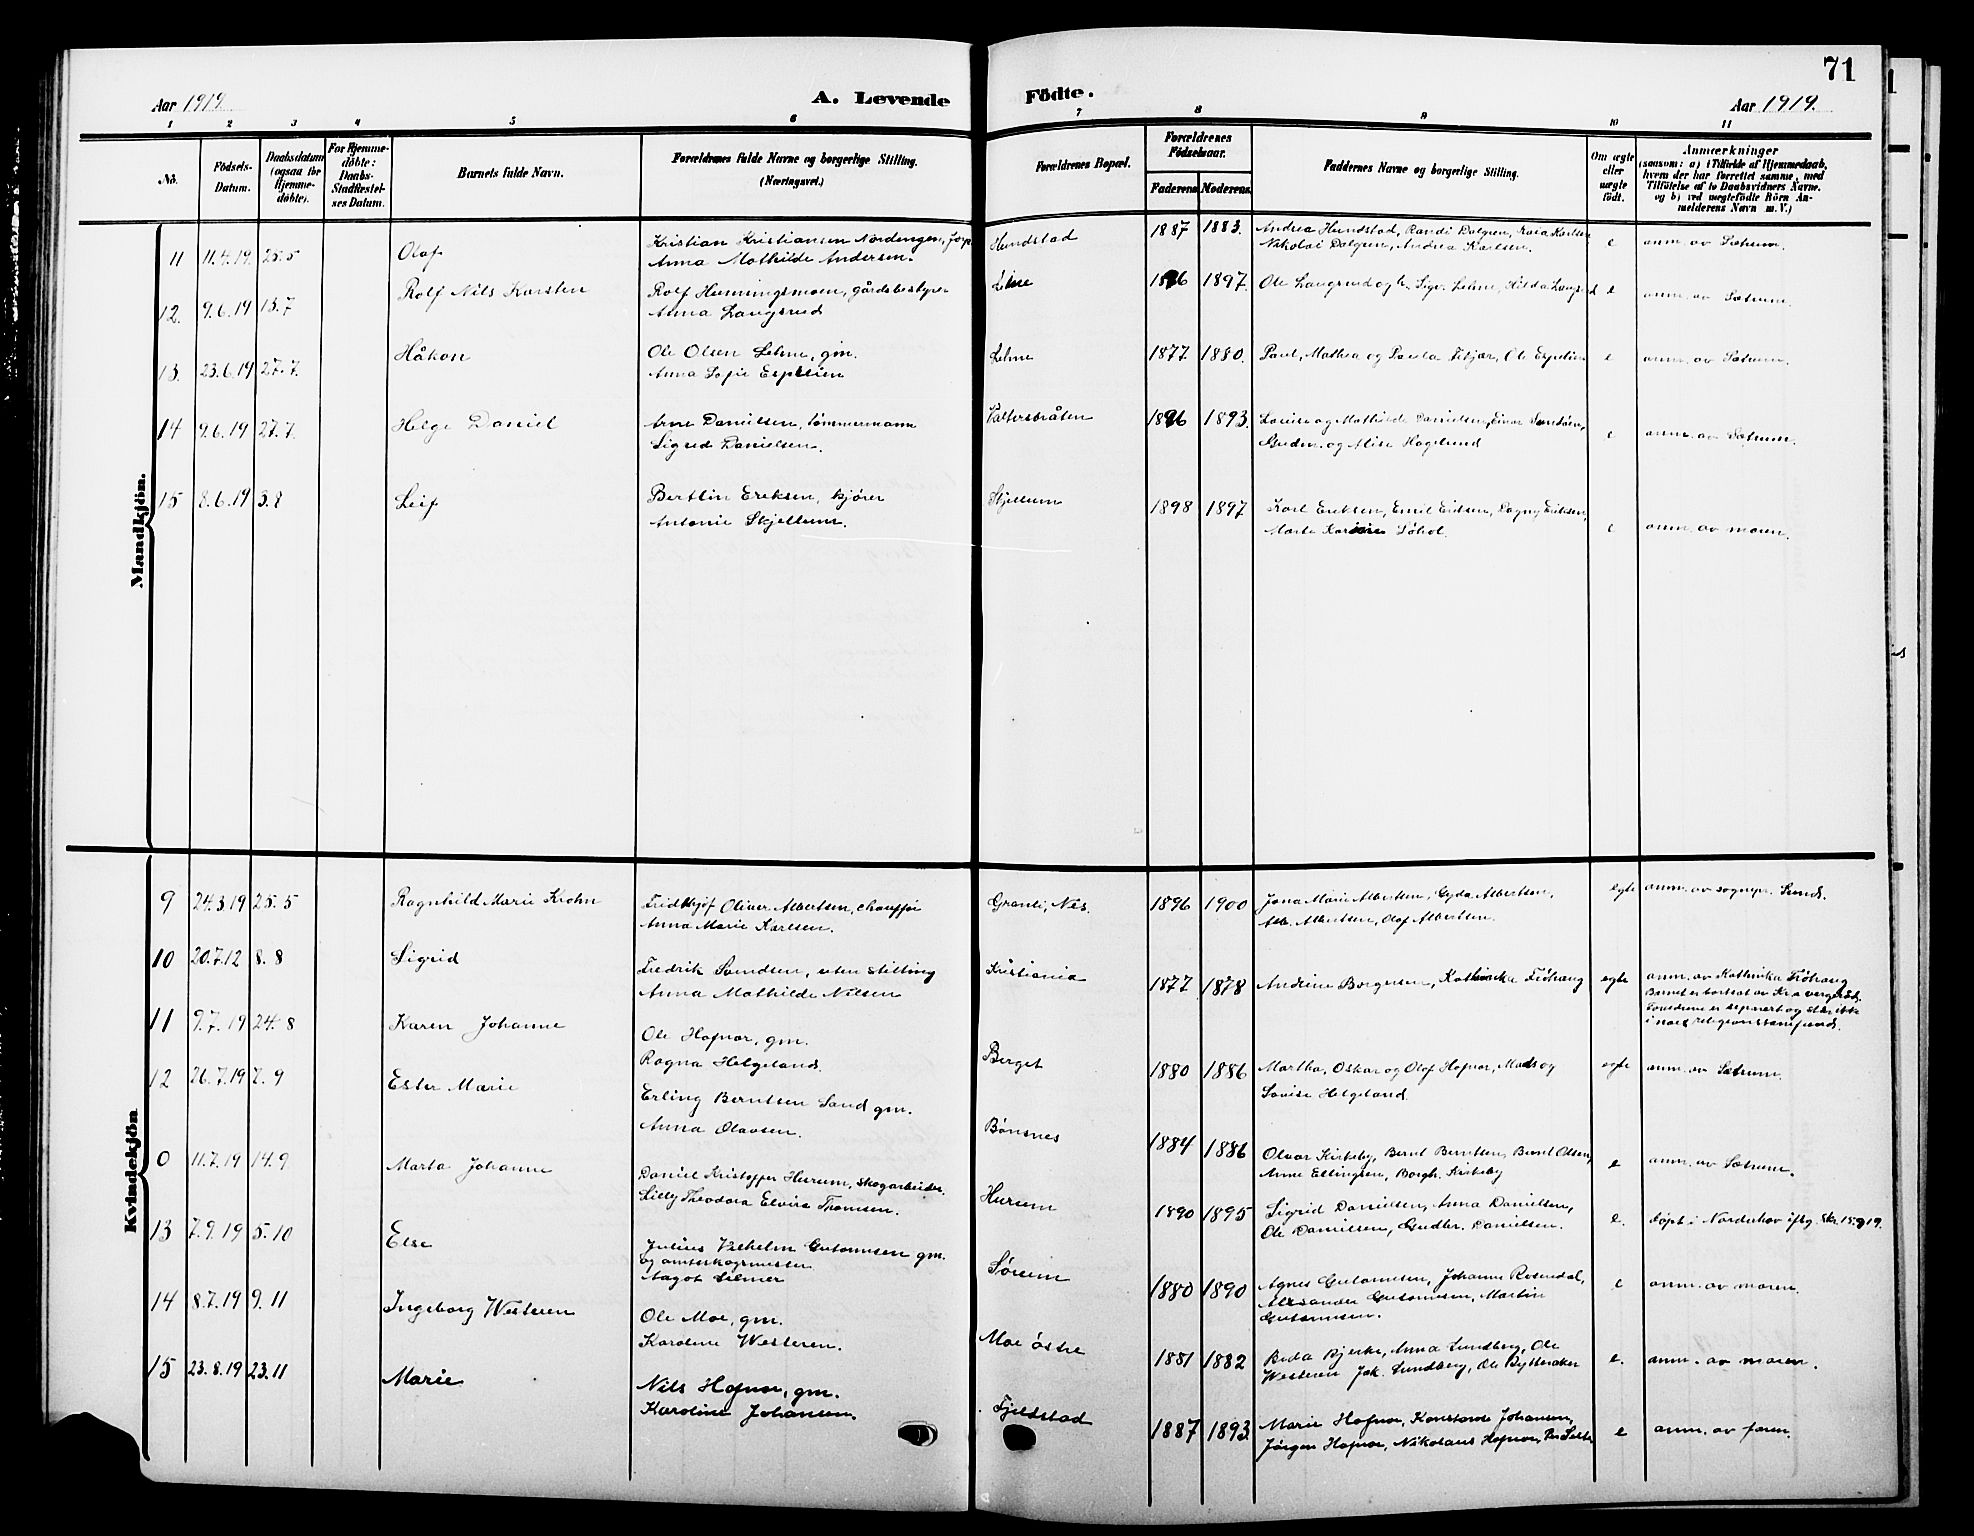 71
Aar 1919.
A. Levende Födte.
Aar 1919.
1 2 3 4 5 6 7 8 9 10 11
No.
Födsels-
Datum.
Daabsdatum
(ogsaa for
Hjemme-
döbte).
For Hjemme-
döbte:
Daabs-
Stadfæstel-
ses Datum.
Barnets fulde Navn.
Forældrenes fulde Navne og borgerlige Stilling.
(Næringsvei.)
Forældrenes Bopæl.
Forældrenes
Födselsaar.
Faderens Moderens.
Faddernes Navne og borgerlige Stilling.
Om ægte
eller
uægte
födt.
Anmærkninger
(saasom: a) i Tilfælde af Hjemmedaab,
hvem der har forrettet samme, med
Tilföielse af to Daabsvidners Navne.
og b) ved uægtefödte Börn An-
melderens Navn m. V.)
Mandkjön.
11 11.4.19. 25.5 Olaf
Kristian Kristiansen Nordengen,
Anna Mathilde Andersen.
Hundstad 1887 1883.
Andrea Hundstad, Randi Dolgren, Rosa Karlsen
Nikolai Dolgren, Andrea Karlsen.
e anm. av Sætrum.
12. 9.6.19 13.7 Rolf Nils Karsten
Rolf Hemmingsmoen, gårdsbestyrer
Anna Laugsrud
1896 1897.
Ole Laugsrud og h., Sigv. Lehne, Hilda Laugsrud
e anm. av Sætrum.
13. 23.6.19 27.7. Håkon
Ole Olsen Lehne, gm.
Anna Sofie Espelien
Lehne 1877. 1880.
Paul, Mathea og Paula Fitjar, Ole Espelien
e anm. av Sætrum.
14 9.6.19 27.7. Helge Daniel
Arne Danielsen, tømmermann
Sigrid Danielsen.
1896 1893.
Lovise og Mathilde Danielsen, Einar
Gudm. og Alise Hagelund
e anm. av Sætrum.
15 8.6.19 3.8 Leif
Bertlin Eriksen, kjører
Antonie Skjellum.
Skjellum 1898 1897
Karl Eriksen, Emil Eriksen, Dagny Eriksen,
Marte Karine Søhol.
e anm. av moren.
Kvindekjön
9 24.3.19 25.5 Ragnhild Marie Krohn
Fridthjof Oliver Albertsen, chauffør
Anna Marie Karlsen.
Granli, Nes. 1896 1900
Jona Marie Albertsen, Gyda Albertsen,
Alb. Albertsen, Olaf Albertsen.
egte anm. av sognepr. Sund.
10 20.7.12 8.8 Sigrid
Fredrik Svendsen, uten stilling
Anna Mathilde Nilsen
Kristiania 1877 1878
Andrine Borgersen, Kathinka Frøhaug
egte anm. av Kathinka Frøhaug
Barnet er bortsat av Kr.a vergeråd.
Foreldrene er separert og står ikke
i noe religionssamfund.
11 9.7.19 24.8 Karen Johanne
Ole Hofnor, gm.
Ragna Helgeland.
Berget 1880 1886
Martha, Oskar og Olaf Hofnor, Mads og
Lovise Helgeland.
egte anm. av Sætrum.
12 26.7.19 7.9 Ester Marie
Erling Berntsen Sand gm.
Anna Olavsen.
Bønsnes 1884 1886
Olvar Kirkeby, Bernt Berntsen, Bernt Olsen,
Anne Ellingsen, Borgh. Kirkeby
e anm. av Sætrum.
0 11.7.19 14.9 Marta Johanne
Daniel Kristoffer Hurum, skogarbeider.
Lilly Theodora Elvira Tromsen.
Hurum 1890 1895
Sigrid Danielsen, Anna Danielsen,
Ole Danielsen, Gudbr. Danielsen.
e. døpt i Norderhov iflg. skr. 15.9.19.
13 7.9.19 5.10 Else
Julius Vilhelm Gutormsen gm.
og amtsskogmester
Aagot Selmer
Søreim 1880 1890
Agnes Gutormsen, Johanne Rosendal,
Alexander Gutormsen, Martin
Gutormsen.
e anm. av moren.
14 8.7.19 9.11 Ingeborg Westeren
Ole Moe, gm.
Karoline Westeren.
Moe östre 1881 1882
Beda Bjerke, Anna Lundberg, Ole
Westeren Jak. Lundberg, Ole Bytteraker
e. anm. av moren.
15 23.8.19 23.11 Marie
Nils Hofnor, gm.
Karoline Johansen.
Fjeldstad 1887 1893.
Marie Hofnor, Konstanse Johansen,
Jørgen Hofnor, Nikolaus Hofnor, Per
e anm. av faren.